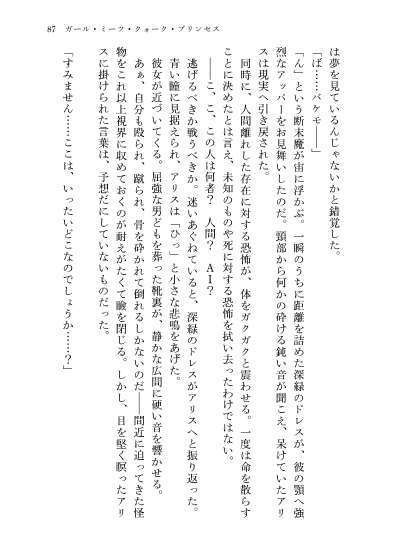 87 ガール・ミーツ・クォーク・プリンセス
は夢を見ているんじゃないかと錯覚した。
「ば……バケモ――」
「ん」という断末魔が宙に浮かぶ。一瞬のうちに距離を詰めた深緑のドレスが、彼の顎へ強
烈なアッパーをお見舞いしたのだ。頸部から何かの砕ける鈍い音が聞こえ、呆けていたアリ
スは現実へ引き戻された。
同時に、人間離れした存在に対する恐怖が、体をガクガクと震わせる。一度は命を散らす
ことに決めたとは言え、未知のものや死に対する恐怖を拭い去ったわけではない。
――こ、こ、この人は何者？　人間？　ＡＩ？
逃げるべきか戦うべきか。迷いあぐねていると、深緑のドレスがアリスへと振り返った。
青い瞳に見据えられ、アリスは「ひっ」と小さな悲鳴をあげた。
彼女が近づいてくる。屈強な男どもを葬った靴裏が、静かな広間に硬い音を響かせる。
あぁ、自分も殴られ、蹴られ、骨を砕かれて倒れるしかないのだ――間近に迫ってきた怪
物をこれ以上視界に収めておくのが耐えがたくて瞼を閉じる。しかし、目を堅く瞑ったアリ
スに掛けられた言葉は、予想だにしていないものだった。
「すみません……ここは、いったいどこなのでしょうか……？」